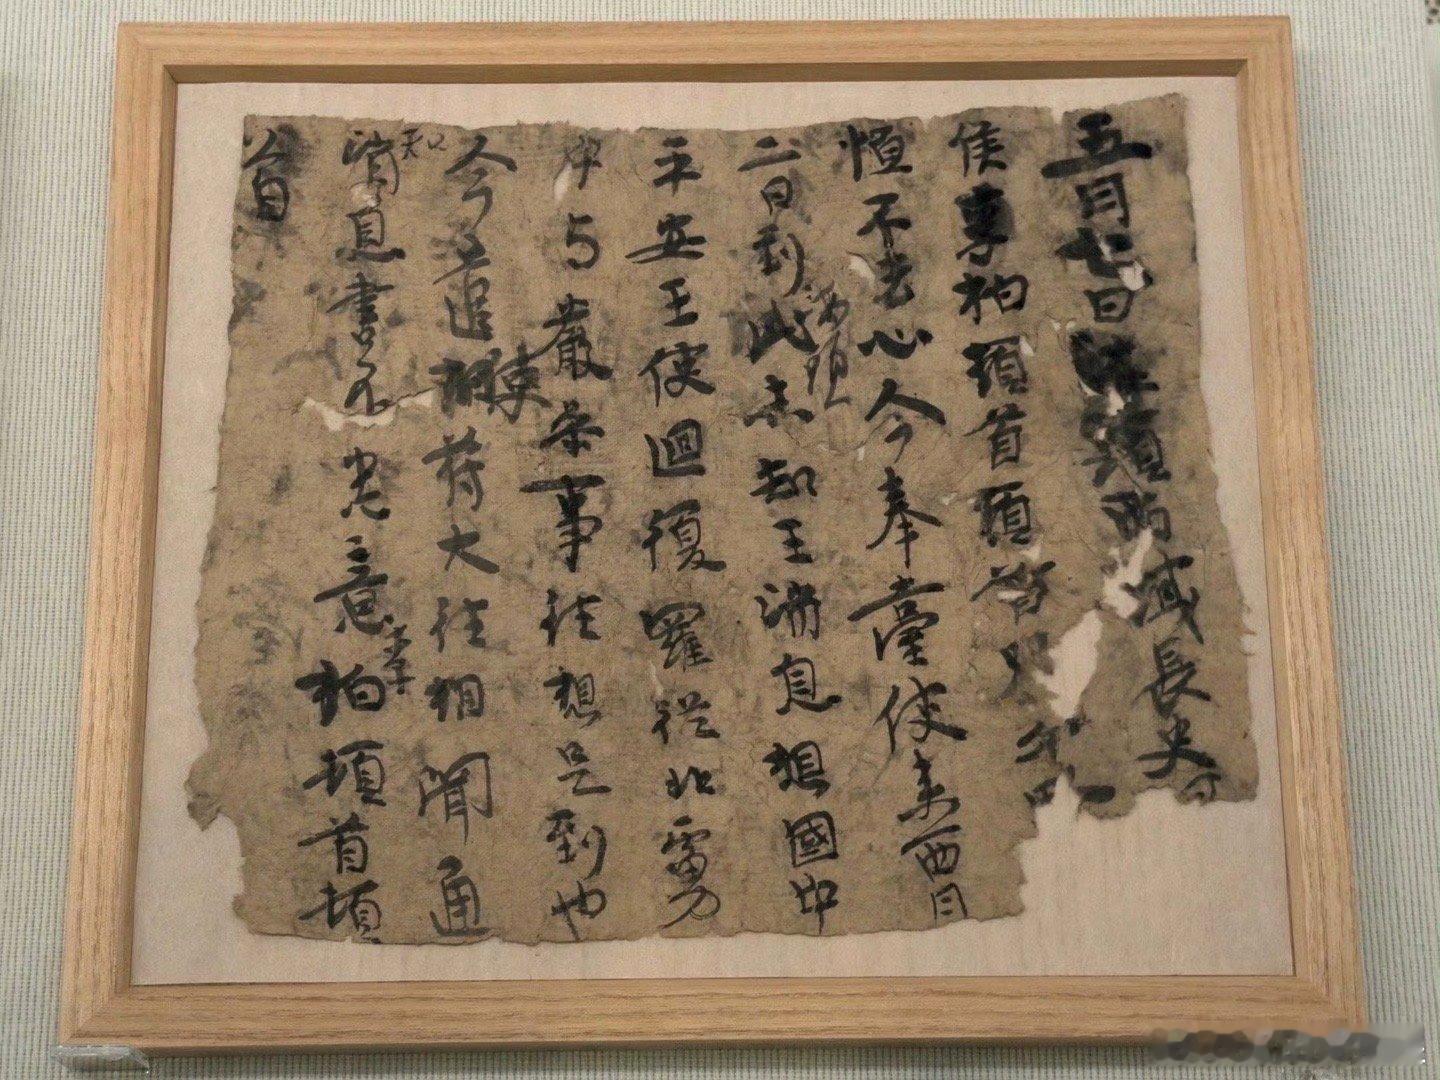 五月七日海頭西域長史
侯李柏頓首頓首
恒不去心今奉臺使来西月
二日到此海頭未知王消息想國中
平安王使迴復羅従北虜
中与嚴参事往想是到也
今遣使苻大往相聞通
知消息書不悉意李柏頓首頓
首